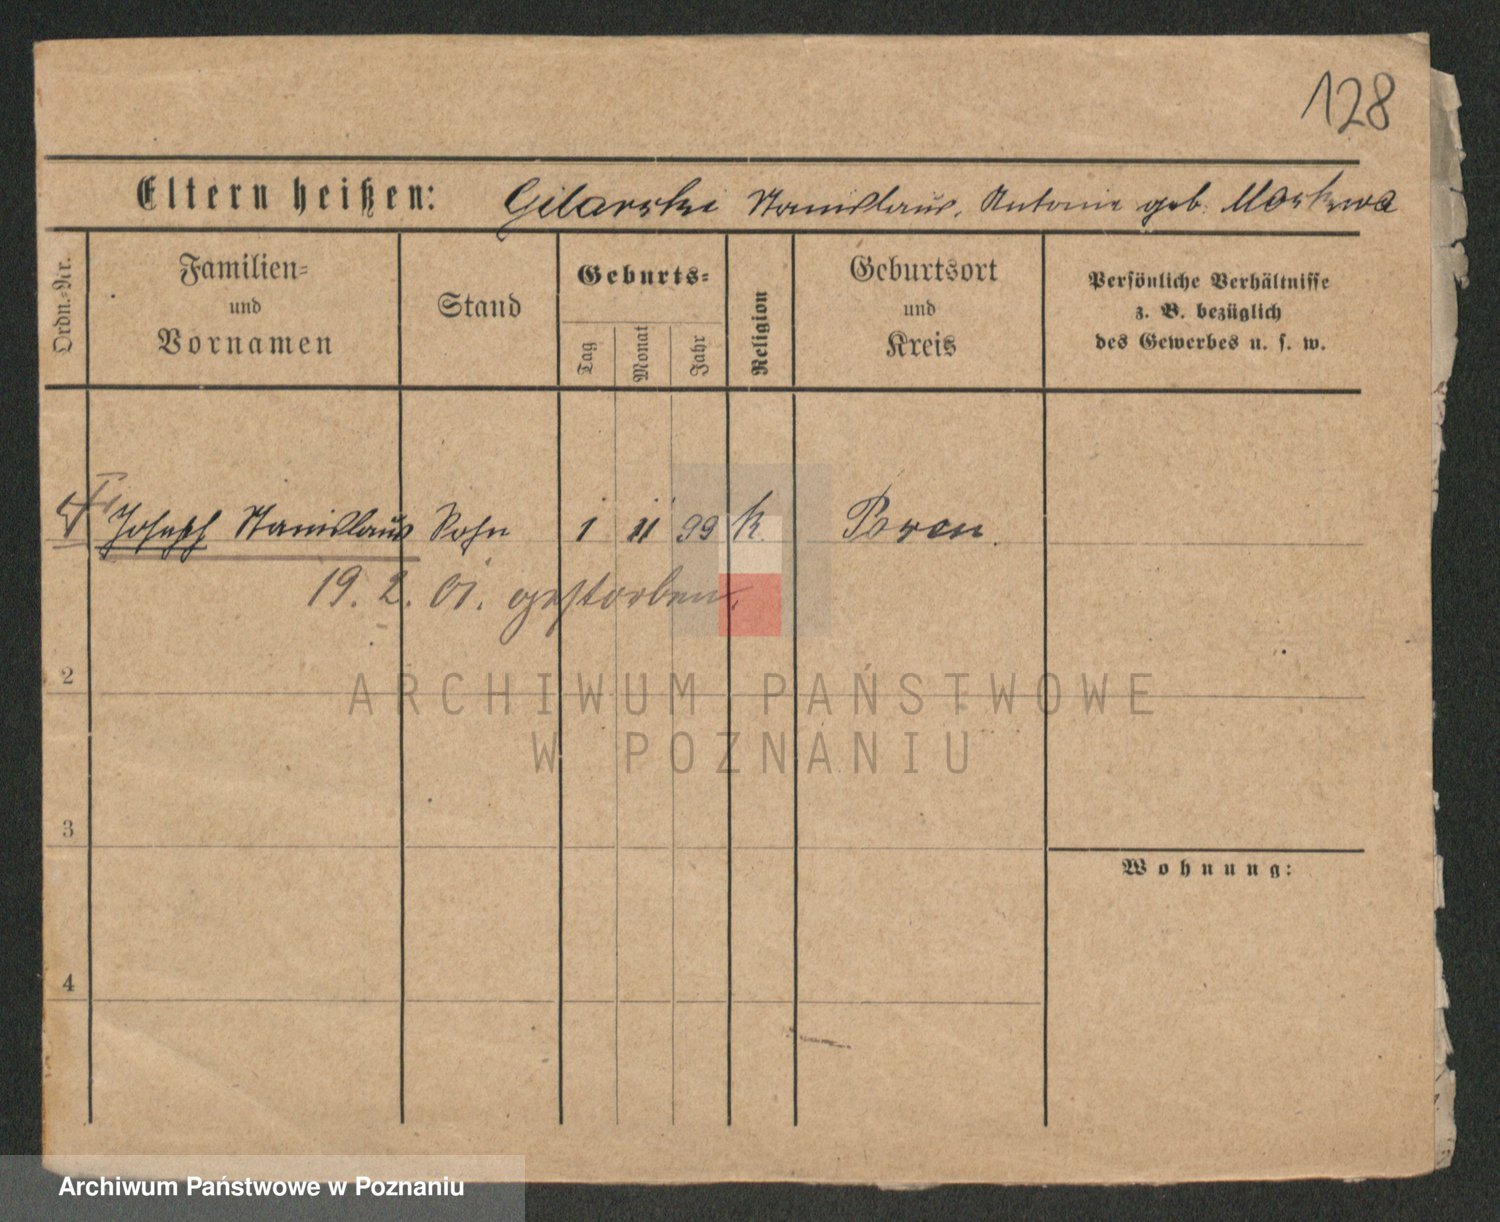 128
Eltern heißen: Gilarski Stanislaus, Antonie geb. Moskwa
Ordn.-Nr.
Familien-
und
Vornamen
Stand
Geburts-
Tag
Monat
Jahr
Religion
Geburtsort
und
Kreis
Persönliche Verhältnisse
z. B. bezüglich
des Gewerbes u. s. w.
Joseph Stanislaus Sohn 1 11 99 k.
19. 2. 01. gestorben.
2
3
4
Wohnung:
ARCHIWUM PAŃSTWOWE
W POZNANIU
Archiwum Państwowe w Poznaniu